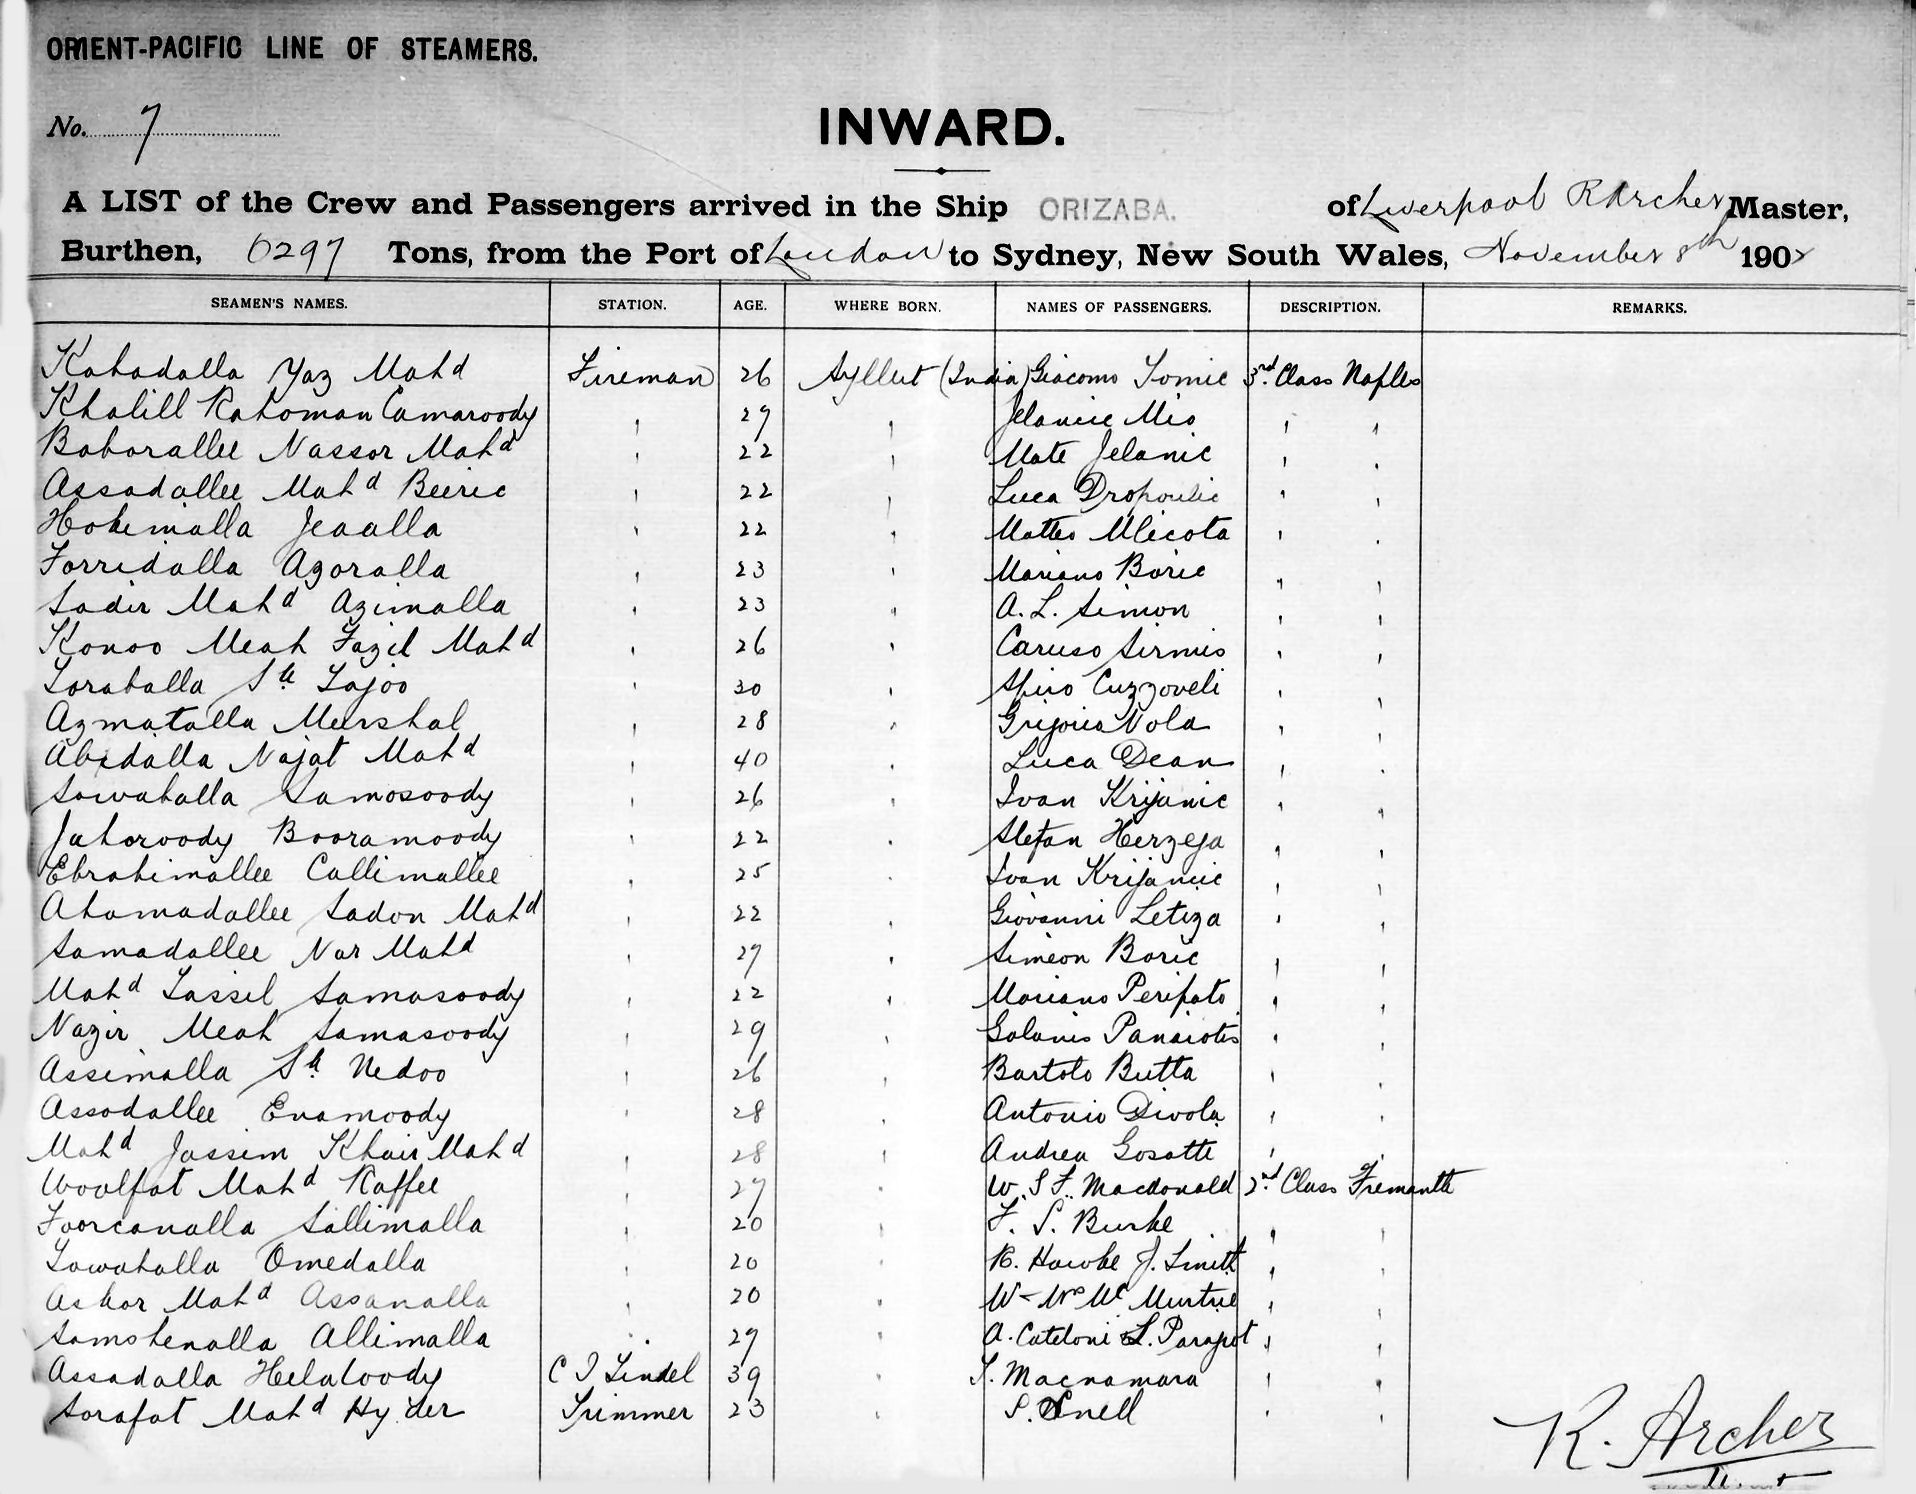 ORIENT-PACIFIC LINE OF STEAMERS.
No. 7
INWARD.
A LIST of the Crew and Passengers arrived in the Ship ORIZABA. of Liverpool R Archer Master,
Burthen, 6297 Tons, from the Port of London to Sydney, New South Wales, November 8th 190
SEAMEN'S NAMES. STATION. AGE. WHERE BORN. NAMES OF PASSENGERS. DESCRIPTION. REMARKS.
Kahadalla Yaz Mahd Fireman 26 Syllut (India) Giacomo Tomic 3rd Class Naples
Khalill Rahoman Camaroody 27 Jelanic Mio
Baharallee Nassor Mahd 22 Mate Jelanic
Assadallee Mahd Beeric 22 Luca
Hokimalla Jeaalla 22 Matteo Mlicota
Forridalla Azoralla 23 Mariano Boric
Sadir Mahd Azimalla 23 A. L. Simon
Konoo Meah Fazil Mahd 26 Caruso Sirmis
Toraballa Sk Lajoo 30 Spiro Cuzzoveli
Azmatalla Murshal 28 Nola
Abidalla Najat Mahd 40 Luca Dean
Sowahalla Samosoody 26 Ivan Krijanic
Jahoroody Booramoody 22 Stefan Herzega
Ebrahimallee Callimallee 25 Ivan Krijancic
Ahamadallee Sadon Mahd 22 Giovanni Letiza
Samadallee Nar Mahd 27 Simeon Boric
Mahd Tassil Samasoody 22 Mariano Peripato
Nazir Meah Samasoody 29 Galanis Panaiotis
Assimalla Sk Nedoo 26 Bartolo Butta
Assodallee Enamoody 28 Antonio Divola
Mahd Jassim Khair Mahd 28 Andrea Gosatti
Woolfat Mahd Kaffee 27 W. S. F. Macdonald 2nd Class Fremantle
Foorcanalla Sallimalla 20 F. S. Burke
Lowahalla Omedalla 20 R. Hawke J. Smith
Askor Mahd Assanalla 20 Mr Mrs Mc Murtrie
Samshenalla Allimalla 27 A. Cateloni & L. Parapot
Assadalla Helaloody C I Tindel 39 T. Macnamara
Sorafat Mahd Hyder Trimmer 23 S. Snell
R. Archer